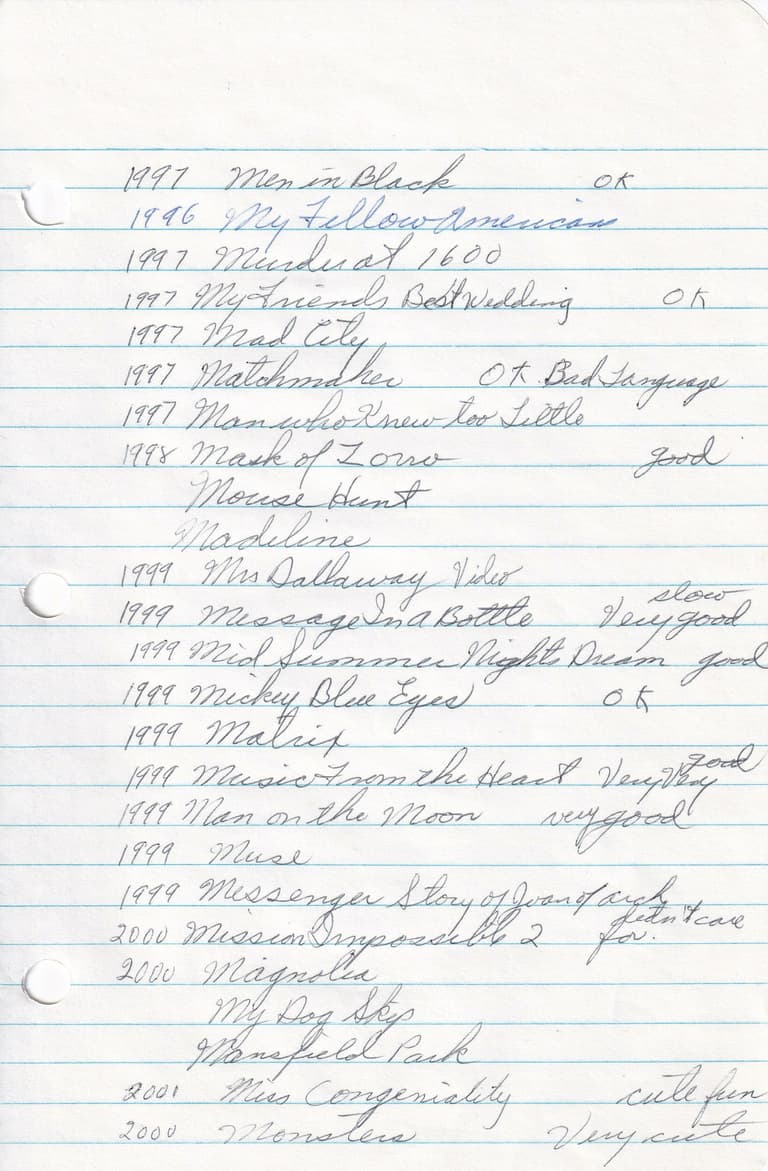 1997 Men in Black OK
1996 My Fellow Americans
1997 Murder at 1600
1997 My Friends Best Wedding OK
1997 Mad City
1997 Matchmaker OK Bad Language
1997 Man who Knew too Little
1998 Mask of Zorro good
Mouse Hunt
Madeline
1999 Mrs Dallaway Video
slow
1999 Message In a Bottle Very good
1999 Mid Summer Nights Dream good
1999 Mickey Blue Eyes OK
1999 Matrix
good
1999 Music From the Heart Very Very
1999 Man on the Moon very good
1999 Muse
1999 Messenger Story of Joan of arch
didn't care
2000 Mission Impossible 2 for.
2000 Magnolia
My Dog Skip
Mansfield Park
2001 Miss Congeniality cute fun
2000 Monsters Very cute